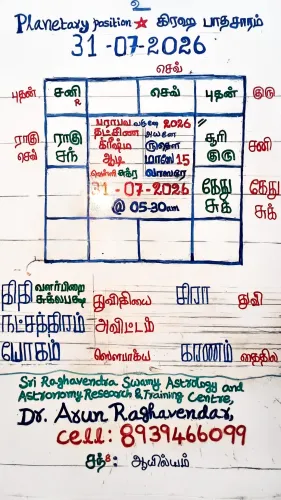 2
Planetary position ★ கிரஹ பாதசாரம்
31-07-2026
செவ்
புதன் சனி R செவ் புதன் குரு
ராகு செவ் ராகு சந் சூரி குரு சனி
பராபவ வருஷ 2026
தட்சிண அயனே
கிரீஷ்ம ருதௌ
ஆடி மாஸ 15
வெள்ளி சுக்ர வாஸரே
31-07-2026
@ 05-30am
கேது சுக் கேது சுக்
திதி வளர்பிறை சுக்லபக்ஷ துவிதியை சிரா துவி
நட்சத்திரம் அவிட்டம்
யோகம் ஸௌபாக்ய கரணம் தைதில
Sri Raghavendra Swamy Astrology and
Astronomy Research & Training Centre,
Dr. Arun Raghavendar,
cell: 8939466099
சந் 8: ஆயில்யம்